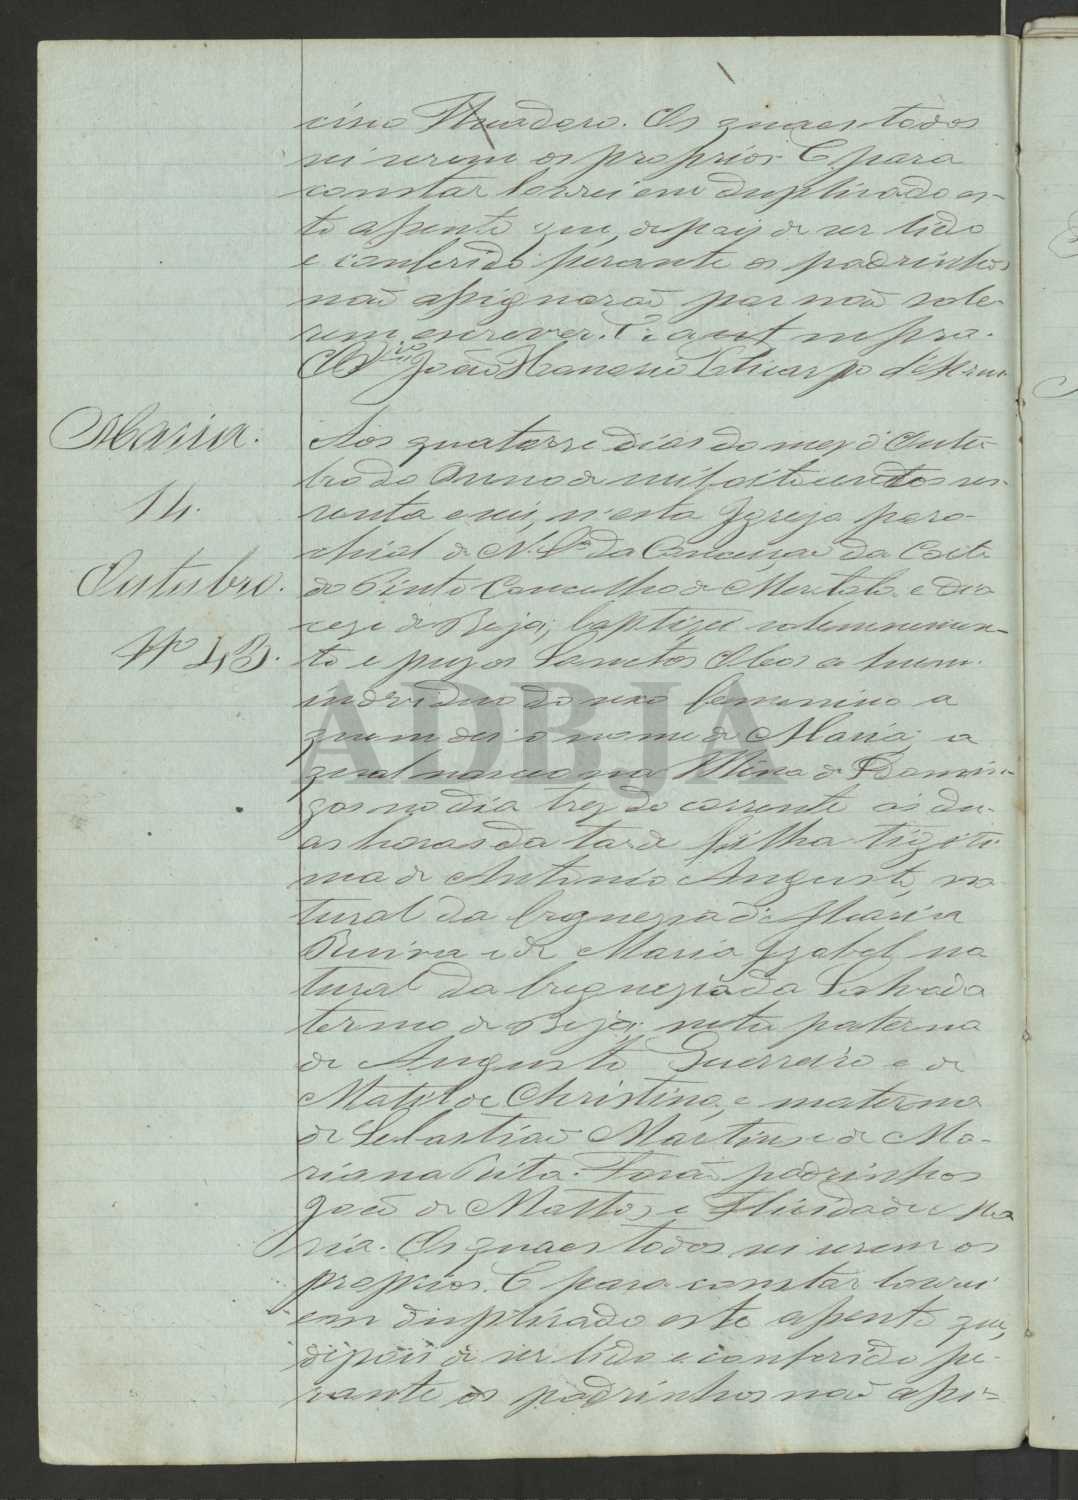 cino Theadoro. Os quaes todos
sei serem os proprios. E para
constar lavrei em duplicado es-
te assento que, depois de ser lido
e conferido perante os padrinhos
não assignarão por não sabe-
rem escrever. Era ut supra.
O João
Maria.
14.
Outubro.
Nº 43.
Aos quatorze dias do mez d'Outu-
bro do Anno de mil oitocentos ses-
senta e seis, n'esta Igreja paro-
chial de N. Sra. da Conceição da Corte
do Pinto Concelho de Mertola e dio
cese de Beja, baptizei solemnemen-
te e puz os Sanctos Oleos a hum
individuo do sexo femenino a
quem dei o nome de Maria, a
qual nasceo na Mina de S. Domin-
gos no dia trez do corrente ás du-
as horas da tarde filha legiti-
ma de Antonio Augusto, na
tural da freguezia de Maria
e de Maria Izabel na
tural da freguezia da Salvada
termo de Beja; neta paterna
de Augusto Guerreiro e de
Matilde Christina, e materna
de Sebastião Martins e de Ma-
riana Rita. Forão padrinhos
João de Mattos e Felicidade Ma
ria. Os quaes todos sei serem os
proprios. E para constar lavrei
em duplicado este assento que,
depois de ser lido e conferido pe-
rante os padrinhos não assi-
ADBJA